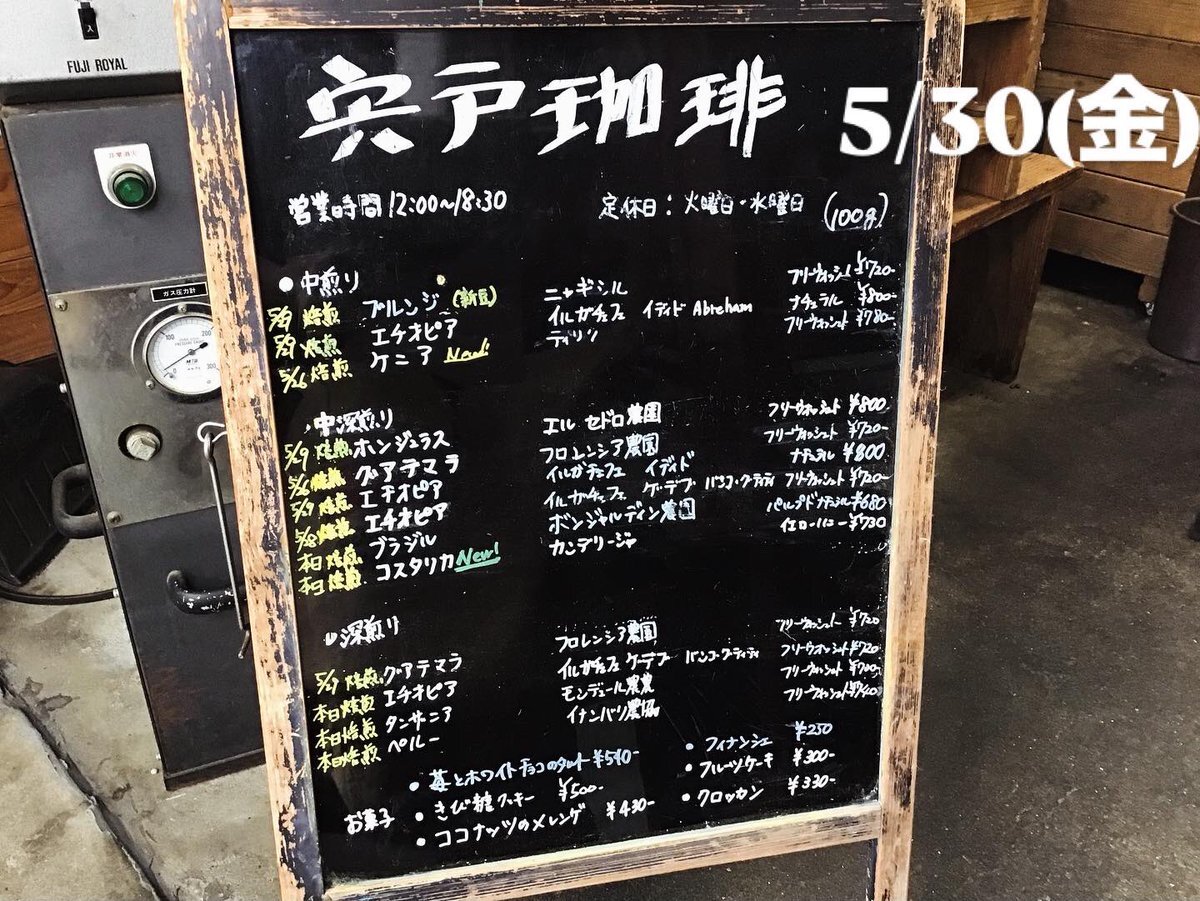 FUJI ROYAL
宍戸珈琲
5/30(金)
非常消火
営業時間 12:00~18:30 定休日: 火曜日・水曜日 (100g)
ガス圧力計
●中煎り
焙煎 ブルンジ (新豆) ニャギシル フリーウォッシュト ¥720-
焙煎 エチオピア イルガチェフェ イディド Abreham ナチュラル ¥800-
5/26 焙煎 ケニア New! ティリツ フリーウォッシュト ¥780-
中深煎り
5/19 焙煎 ホンジュラス エル セドロ農園 フリーウォッシュト ¥800-
焙煎 グアテマラ フロレンシア農園 フリーウォッシュト ¥720-
焙煎 エチオピア イルガチェフェ イディド ナチュラル ¥800
焙煎 エチオピア イルガチェフェ ゲ・デブ バンコ・ゴーティティ フリーウォッシュト ¥720-
本日焙煎 ブラジル ボンジャルディン農園 パルプドナチュラル ¥680
本日焙煎 コスタリカ New! カンデリージャ イエローハニー ¥730
深煎り
焙煎 グアテマラ フロレンシア農園 フリーウォッシュト ¥720
本日焙煎 エチオピア イルガチェフェ ゲ・デブ バンコ・ゴーティティ フリーウォッシュト ¥720-
本日焙煎 タンザニア モンデュール農園 フリーウォッシュト ¥700-
本日焙煎 ペルー イナンバリ農協 フリーウォッシュト
お菓子
・苺とホワイトチョコのタルト ¥540-
・きび糖クッキー ¥500-
・ココナッツのメレンゲ ¥430-
・フィナンシェ ¥250
・フルーツケーキ ¥300-
・クロッカン ¥330-